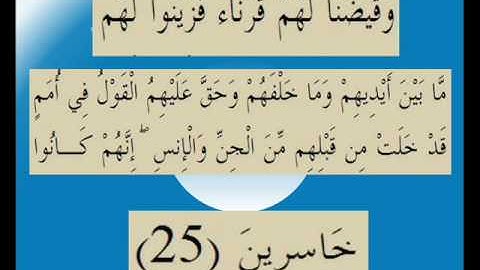 وَقَيَّضْنَا لَهُمْ قُرَنَاءَ فَزَيَّنُوا لَهُم
مَّا بَيْنَ أَيْدِيهِمْ وَمَا خَلْفَهُمْ وَحَقَّ عَلَيْهِمُ الْقَوْلُ فِي أُمَمٍ
قَدْ خَلَتْ مِن قَبْلِهِم مِّنَ الْجِنِّ وَالْإِنسِ ۖ إِنَّهُمْ كَانُوا
خَاسِرِينَ (25)